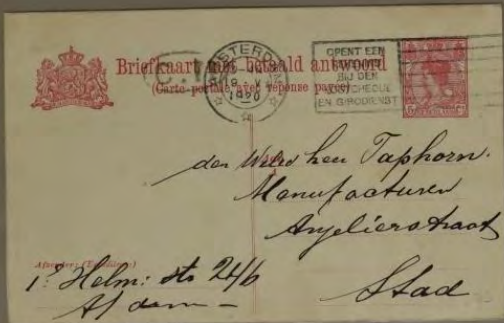 Briefkaart met betaald antwoord
(Carte postale avec réponse payée)
AMSTERDAM
1920
OPENT EEN
BIJ DEN
POSTCHEQUE
EN GIRODIENST
den Weled heer Taphorn.
Manufacturen
Anjelierstraat
Stad
Afzender: (Expéditeur)
1e Helm: str 246
A/dam